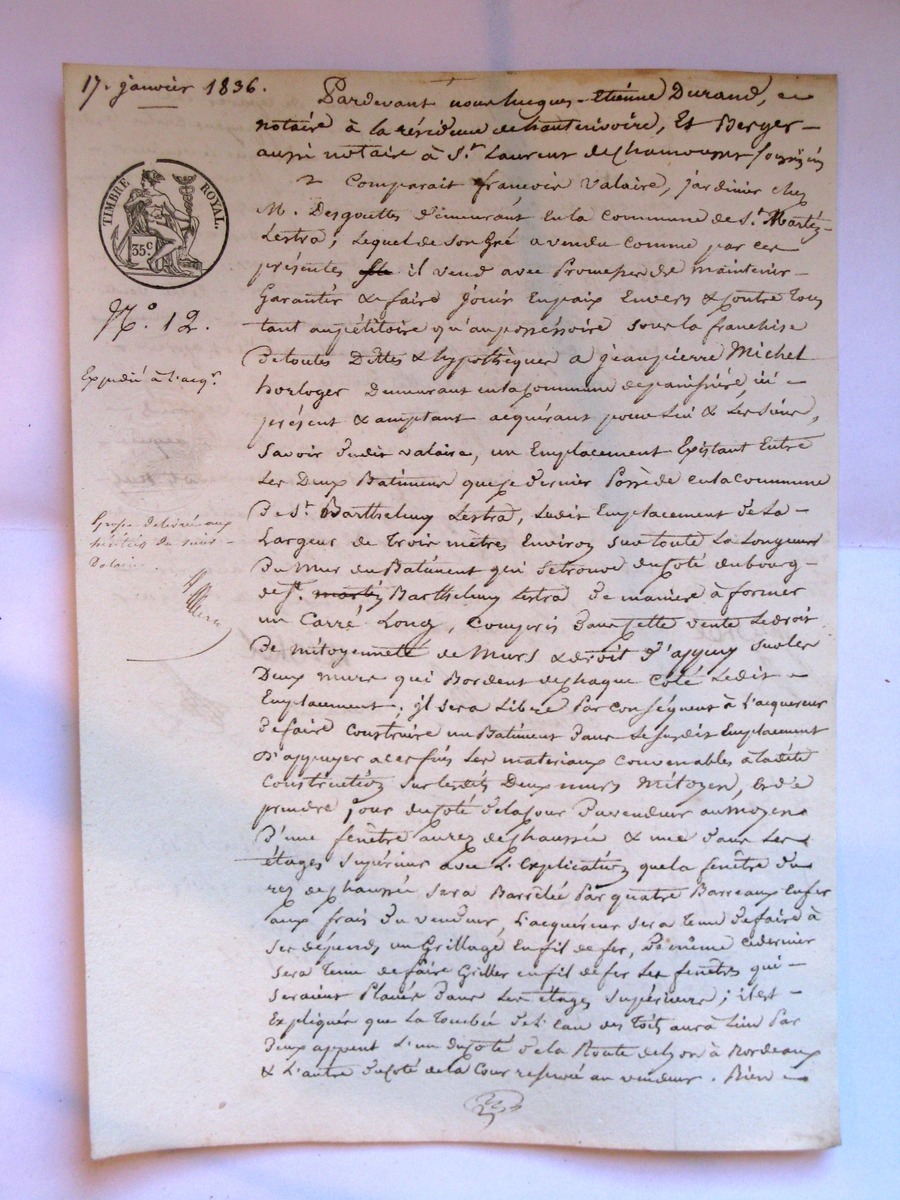 17. janvier 1836.
Pardevant nous hugues-Etiénne Durand,
notaire à la résidence de hauterivoire, Et Berger
aussi notaire à St. Laurent de Chamousset soussignés
Comparait françois Valaire, jardinier chez
M. Desgouttes Demeurant en la Commune de St. Martin
Lestra; Lequel de son Gré a vendu Comme par ces
présentes il vend avec Promesses de maintenir
Garantir & faire jouir En paix Envers & Contre tous
tant au pétitoire qu'au possessoire sous la franchise
De toutes Dettes & hypothèques a jean pierre Michel
horloger Demeurant en la Commune de panissière, ici
présent & acceptant acquérant pour Lui & Les Siens,
Savoir dudit valaire, un Emplacement Existant Entre
Les Deux Batimens que ce dernier Possède en la Commune
De St. Barthelemy Lestra, Ledit Emplacement de La
Largeur de Trois mètres Environ sur toute La Longueur
Du Mur du Batiment qui se trouve du Coté du bourg
de St. martin Barthelemy Lestra De maniere à former
un Carré Long, Compris Dans Cette vente Le droit
De mitoyenneté de Murs & droit D'appuy sur les
Deux murs qui Bordent de chaque Coté Ledit
Emplacement. il sera Libre Par Conséquent à L'acquereur
de faire Construire un Batiment Dans Le susdit Emplacement
D'appuyer a ces fins Les materiaux Convenables à ladite
Construction sur lesdits Deux murs Mitoyen, & de
prendre jour du Coté de la Cour du vendeur au moyen
D'une fenêtre au rez de chaussée & une Dans Les
étages supérieur avec L'Explication que la fenêtre du
rez de chaussée sera Barrêlée Par quatre Barreaux En fer
aux frais du vendeur, L'acquéreur sera Tenu de faire à
ses dépends un Grillage En fil de fer, De même ce dernier
sera Tenu de faire Griller en fil de fer Les fenêtres qui
seraient Placées Dans Les étages supérieurs; il est
Expliqué que La Tombée De L'Eau des Toits aura Lieu Par
Deux appent L'un du Coté de la Route de Lyon à Bordeaux
& L'autre du Coté de la Cour reservée au vendeur. Rien
TIMBRE ROYAL.
35c.
No. 12.
Expédié à l'acqr.
Grosse délivrée aux
héritiers du sieur
Valaire